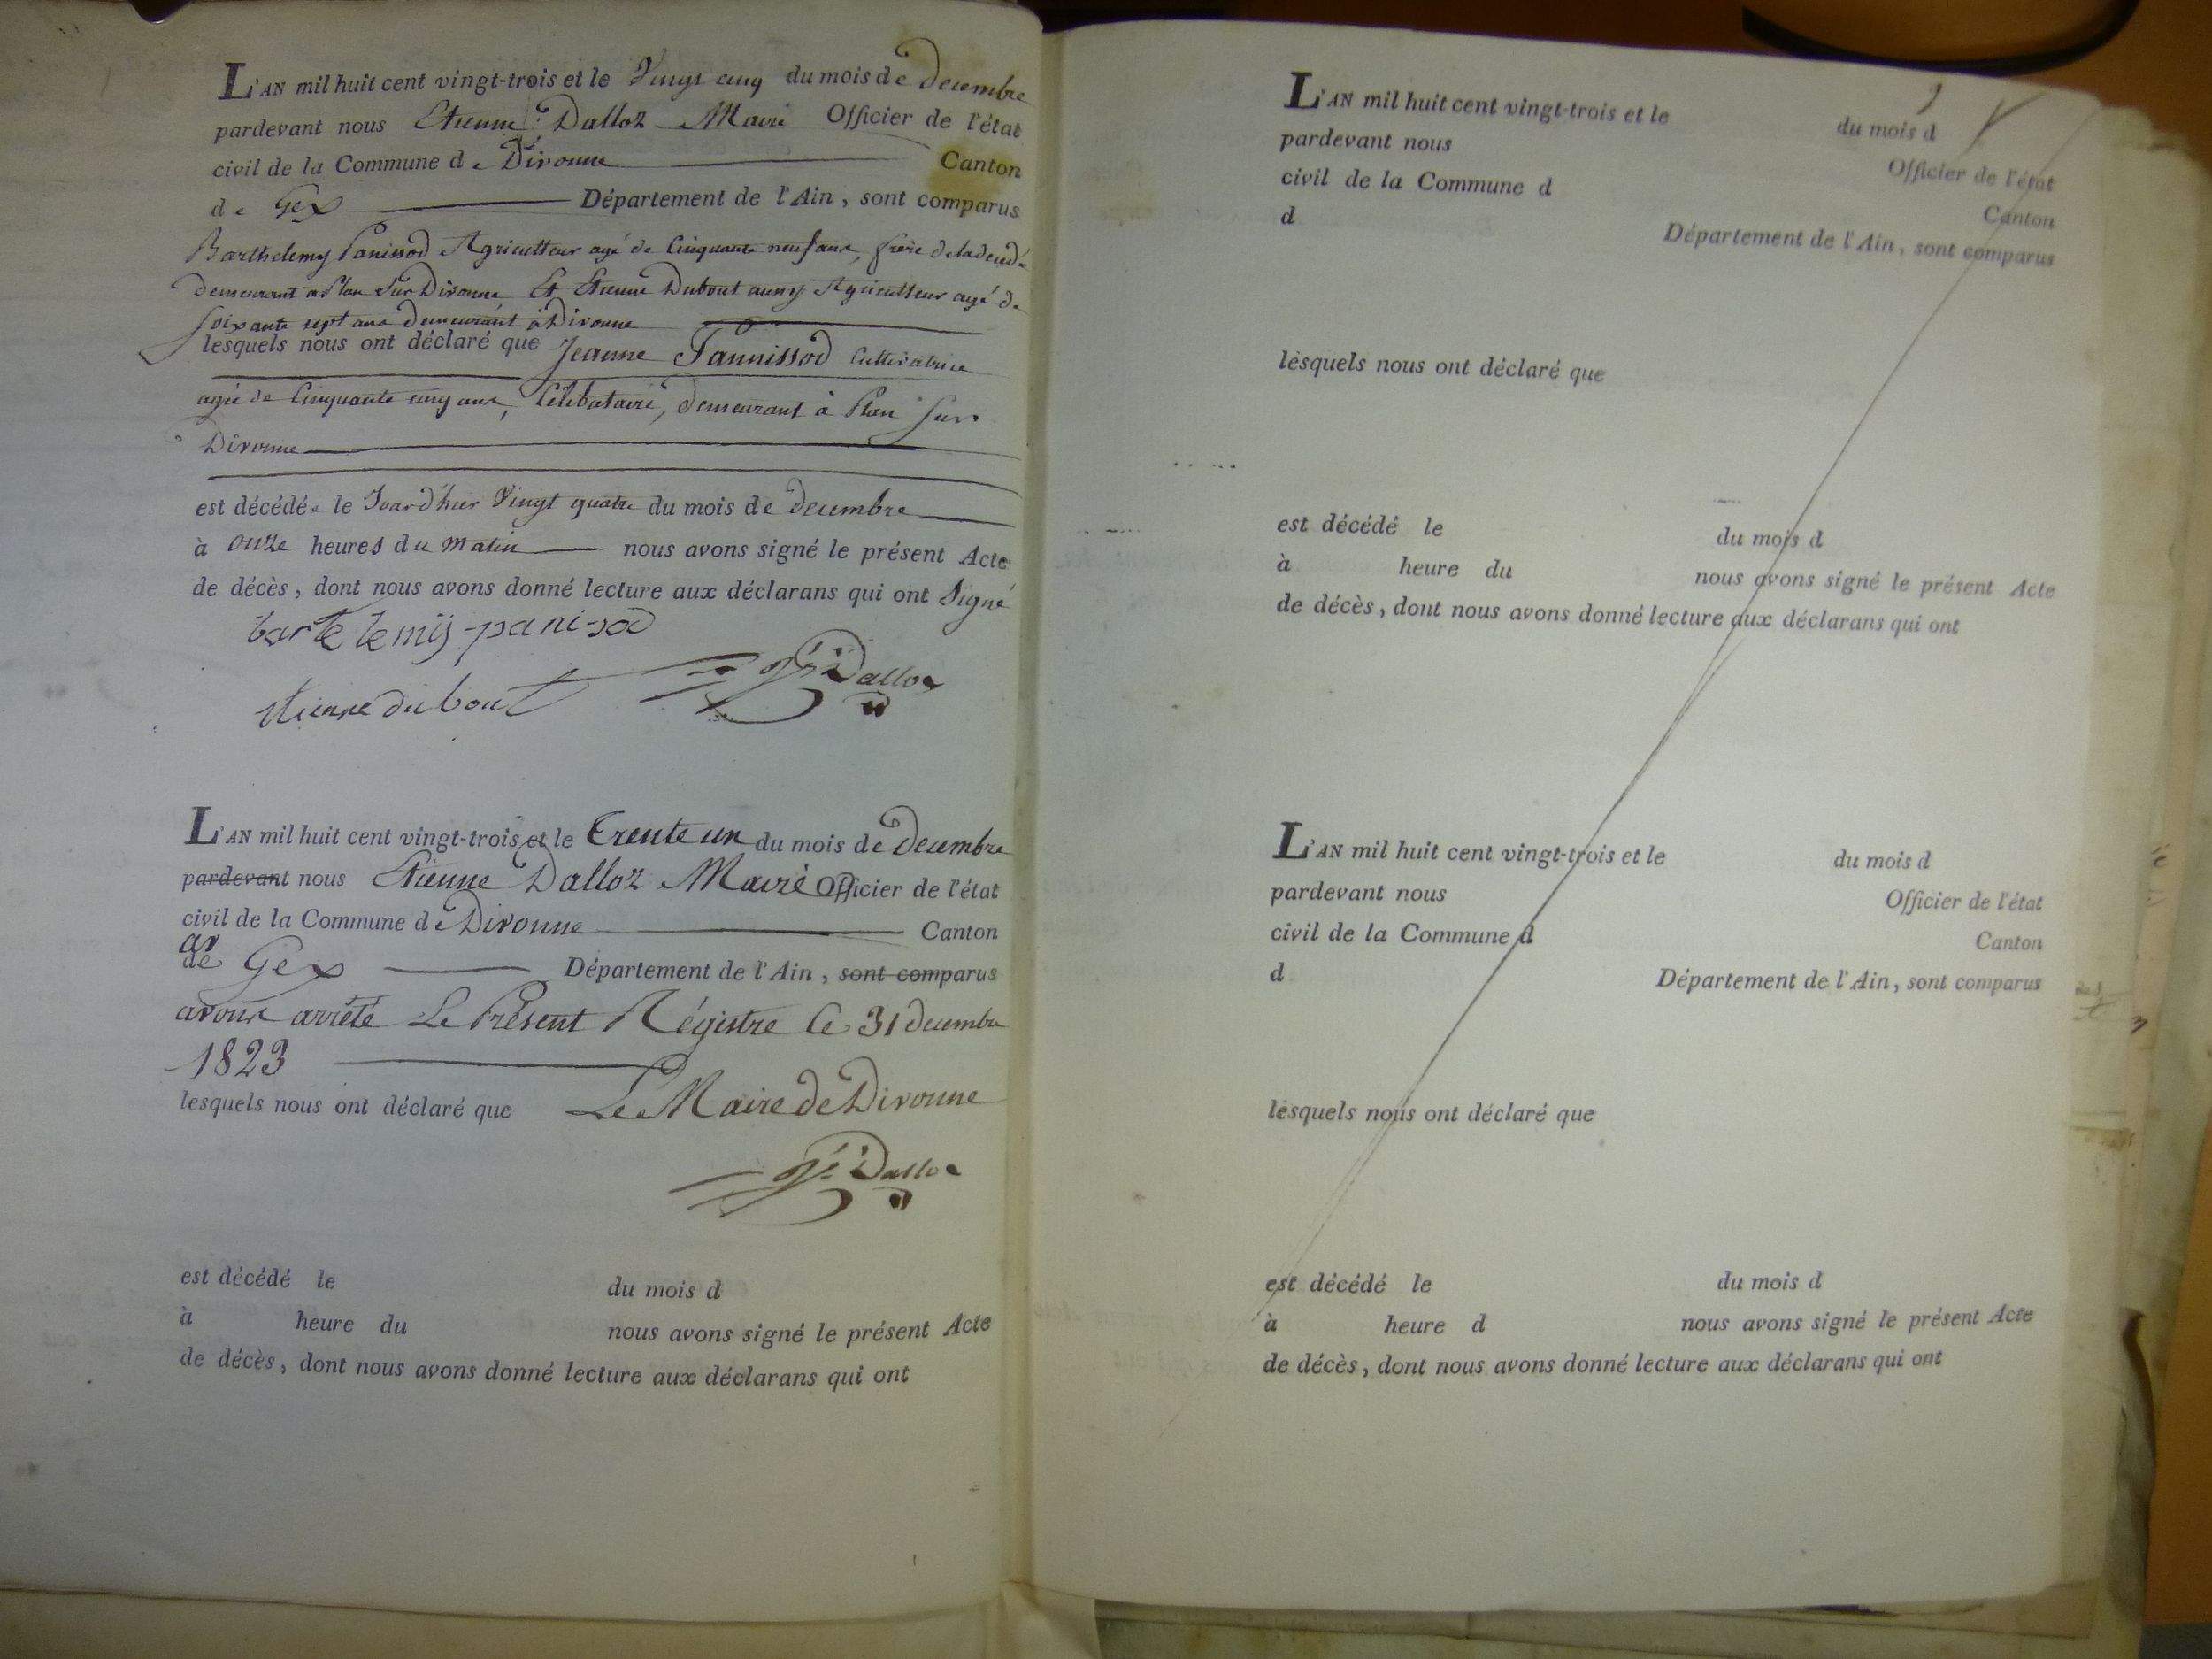 L'AN mil huit cent vingt-trois et le Vingt cinq du mois de decembre
pardevant nous Etienne Dalloz Maire Officier de l'état
civil de la Commune de Divonne Canton
de Gex Département de l'Ain, sont comparus
Barthelemy Panissod Agriculteur agé de Cinquante neuf ans, frere de la decedé
demeurant a Plan Sur Divonne Et Etienne Dubout aussy Agriculteur agé de
Soixante sept ans Demeurant à Divonne
lesquels nous ont déclaré que Jeanne Pannissod Cultivatrice
agée de Cinquante cinq ans, Célibataire, demeurant à Plan Sur
Divonne
est décédée le Jourd'hier Vingt quatre du mois de decembre
à onze heures du matin nous avons signé le présent Acte
de décès, dont nous avons donné lecture aux déclarans qui ont Signé
bartelemy-panisod
etienne du bout
Dalloz
L'AN mil huit cent vingt-trois et le Trente un du mois de decembre
pardevant nous Etienne Dalloz Maire Officier de l'état
civil de la Commune de Divonne Canton
de Gex Département de l'Ain, sont comparus
avons arrêté Le Présent Régistre Le 31 decembre
1823
lesquels nous ont déclaré que Le Maire de Divonne
Dalloz
est décédé le du mois d
à heure du nous avons signé le présent Acte
de décès, dont nous avons donné lecture aux déclarans qui ont
L'AN mil huit cent vingt-trois et le du mois d
pardevant nous Officier de l'état
civil de la Commune d Canton
d Département de l'Ain, sont comparus
lesquels nous ont déclaré que
est décédé le du mois d
à heure du nous avons signé le présent Acte
de décès, dont nous avons donné lecture aux déclarans qui ont
L'AN mil huit cent vingt-trois et le du mois d
pardevant nous Officier de l'état
civil de la Commune d Canton
d Département de l'Ain, sont comparus
lesquels nous ont déclaré que
est décédé le du mois d
à heure d nous avons signé le présent Acte
de décès, dont nous avons donné lecture aux déclarans qui ont